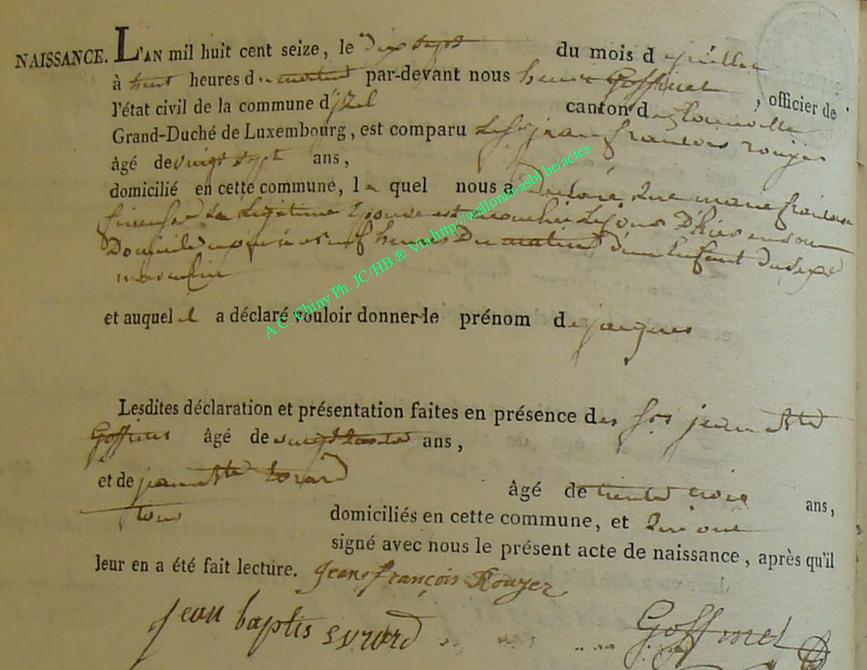 NAISSANCE. L'AN mil huit cent seize, le Dix sept du mois d juillet
à huit heures du matin par-devant nous henri Goffinet, officier de
l'état civil de la commune d'jzel canton d
Grand-Duché de Luxembourg, est comparu Le Sr jean françois rouyer
âgé de vingt sept ans,
domicilié en cette commune, le quel nous a Déclaré, Que marie françoise
Sa Légitime Epouse est accouchée Le jour D'hier en son
Domicile neuf heures Du matin d'un Enfant du Sexe
masculin
et auquel il a déclaré vouloir donner le prénom de jacques
Lesdites déclaration et présentation faites en présence des Srs jean Bte
Goffinet âgé de vingt ans,
et de jean Bte Evrard
âgé de trente trois ans,
tous domiciliés en cette commune, et Qui ont
signé avec nous le présent acte de naissance, après qu'il
leur en a été fait lecture. Jean françois Rouyer
jean baptis evrard Goffinet
A.C. Chiny Ph. JC/HB ® Via http://wallonia-asbl.be/actes